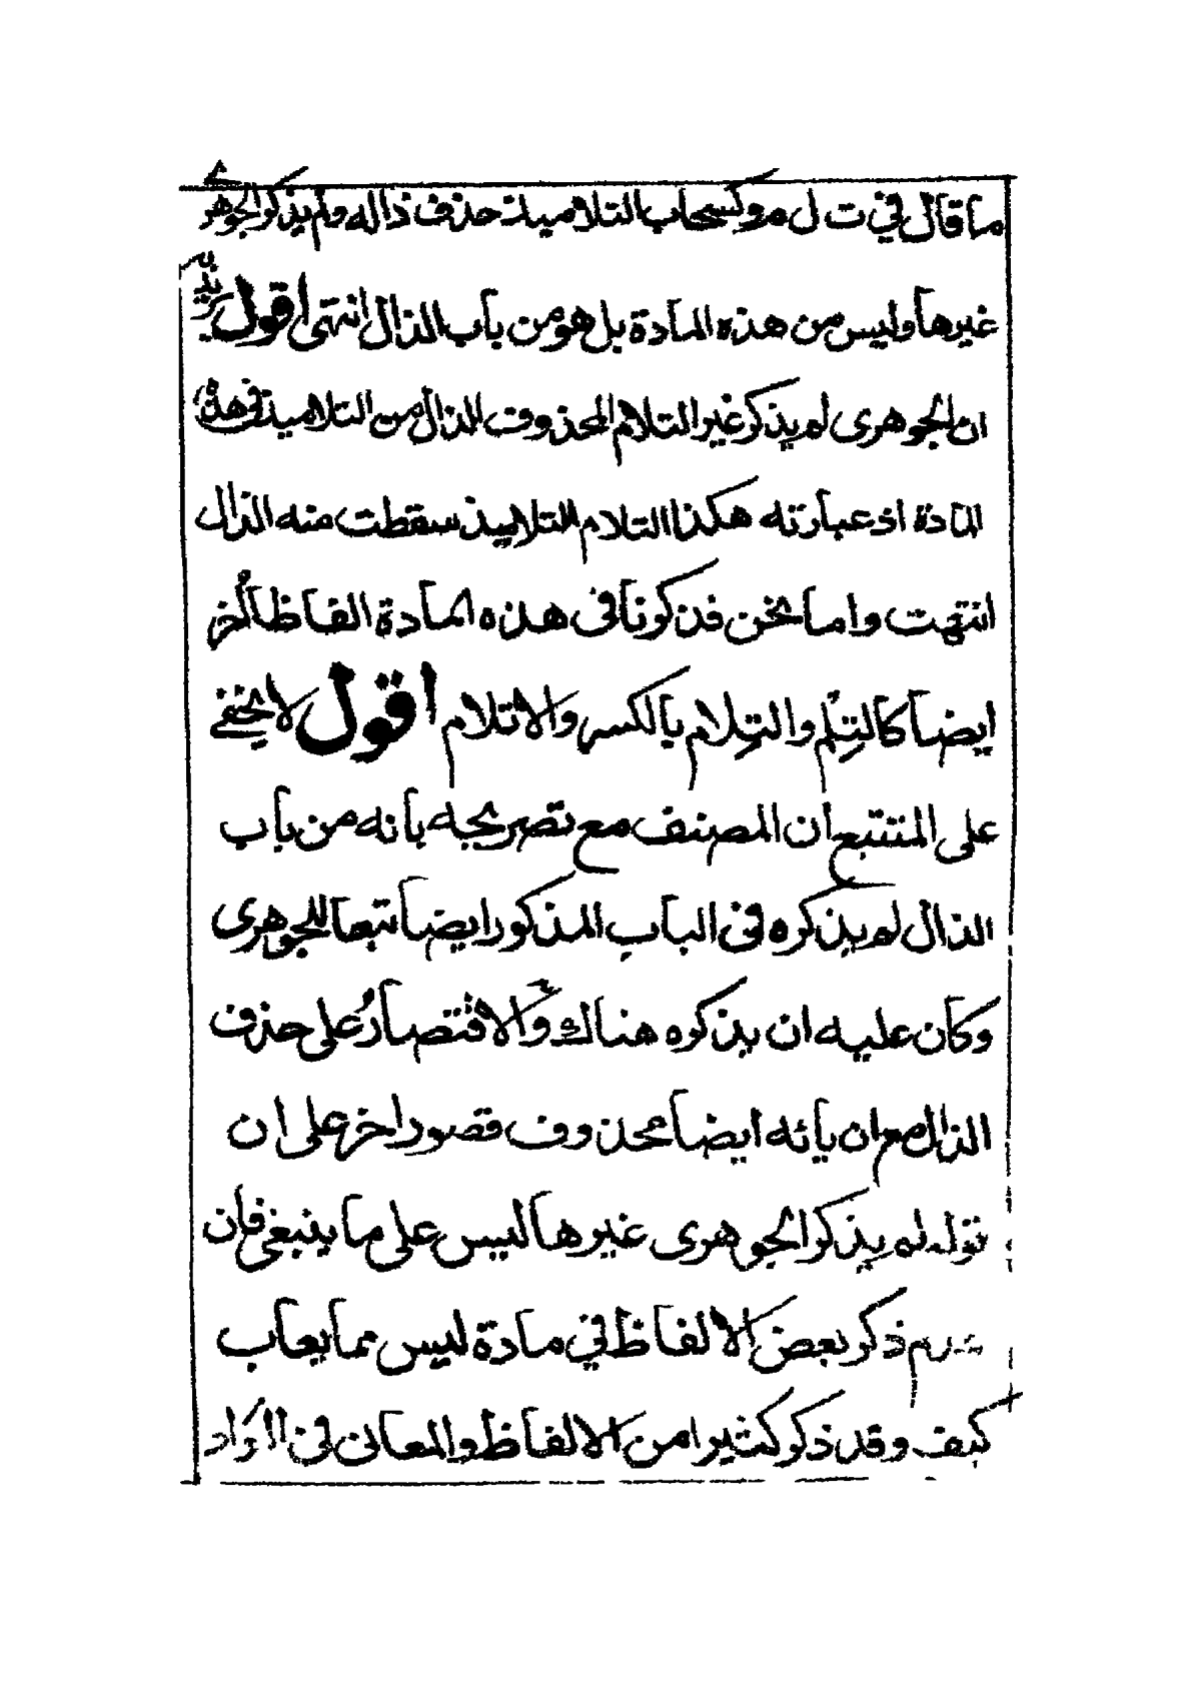 ما قال في ت ل م وكسحاب التلاميذ حذف ذاله ولم يذكر الجوهري
غيرها وليس من هذه المادة بل هو من باب الذال انتهى اقول يريد
ان الجوهرى لم يذكر غير التلام المحذوف الذال من التلاميذ فى هذه
المادة اذ عبارته هكذا التلام التلاميذ سقطت منه الذال
انتهت واما نحن فذكونا فى هذه المادة الفاظا أُخر
ايضا كالتِلْم والتِلام بالكسر والاتلام اقول لا يخفى
على المتتبع ان المصنف مع تصريحه بانه من باب
الذال لم يذكره فى الباب المذكور ايضا تبعا للجوهرى
وكان عليه ان يذكره هناك والاقتصارُ على حذف
الذال مع ان يائه ايضا محذوف قصور اخر على ان
قوله لم يذكر الجوهرى غيرها ليس على ما ينبغى فان
عدم ذكر بعض الالفاظ في مادة ليس مما يعاب
كيف وقد ذكر كثيرا من الالفاظ والمعانى فى